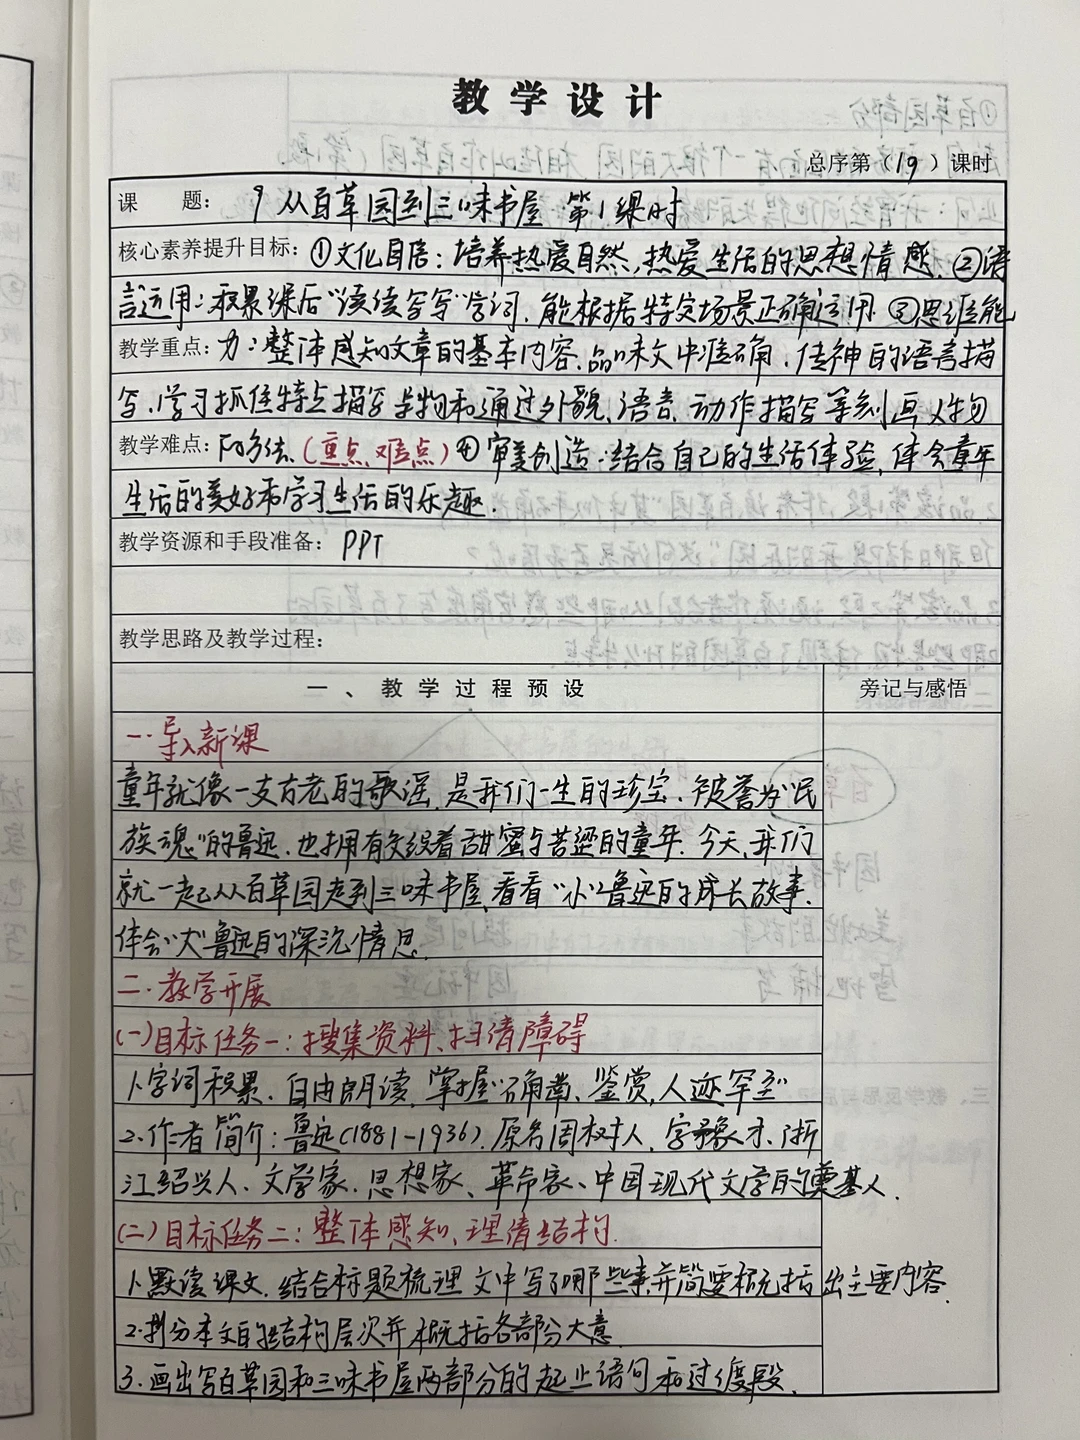 教学设计
总序第（19）课时
课 题：9 从百草园到三味书屋 第1课时
核心素养提升目标：①文化自信：培养热爱自然，热爱生活的思想情感。②语
言运用：积累课后“读读写写”字词，能根据特定场景正确运用 ③思维能
教学重点：力：整体感知文章的基本内容，品味文中准确、传神的语言描
写，学习抓住特点描写景物和通过外貌、语言、动作描写等刻画人物
教学难点：的方法（重点、难点）④审美创造：结合自己的生活体验，体会童年
生活的美好和学习生活的乐趣。
教学资源和手段准备：PPT
教学思路及教学过程：
一、教学过程预设 旁记与感悟
一.导入新课
童年就像一支古老的歌谣，是我们一生的珍宝，被誉为“民
族魂”的鲁迅，也拥有交织着甜蜜与苦涩的童年。今天，我们
就一起从百草园走到三味书屋，看看“小”鲁迅的成长故事，
体会“大”鲁迅的深沉情思。
二.教学开展
(一)目标任务一：搜集资料、扫清障碍
1.字词积累，自由朗读，掌握“确凿、鉴赏，人迹罕至”
2.作者简介：鲁迅(1881-1936)，原名周树人，字豫才，浙
江绍兴人，文学家、思想家、革命家、中国现代文学的奠基人。
(二)目标任务二：整体感知、理清结构
1.默读课文，结合标题梳理文中写了哪些事，并简要概括出主要内容。
2.划分本文的结构层次并概括各部分大意
3.画出写百草园和三味书屋两部分的起止语句和过渡段。